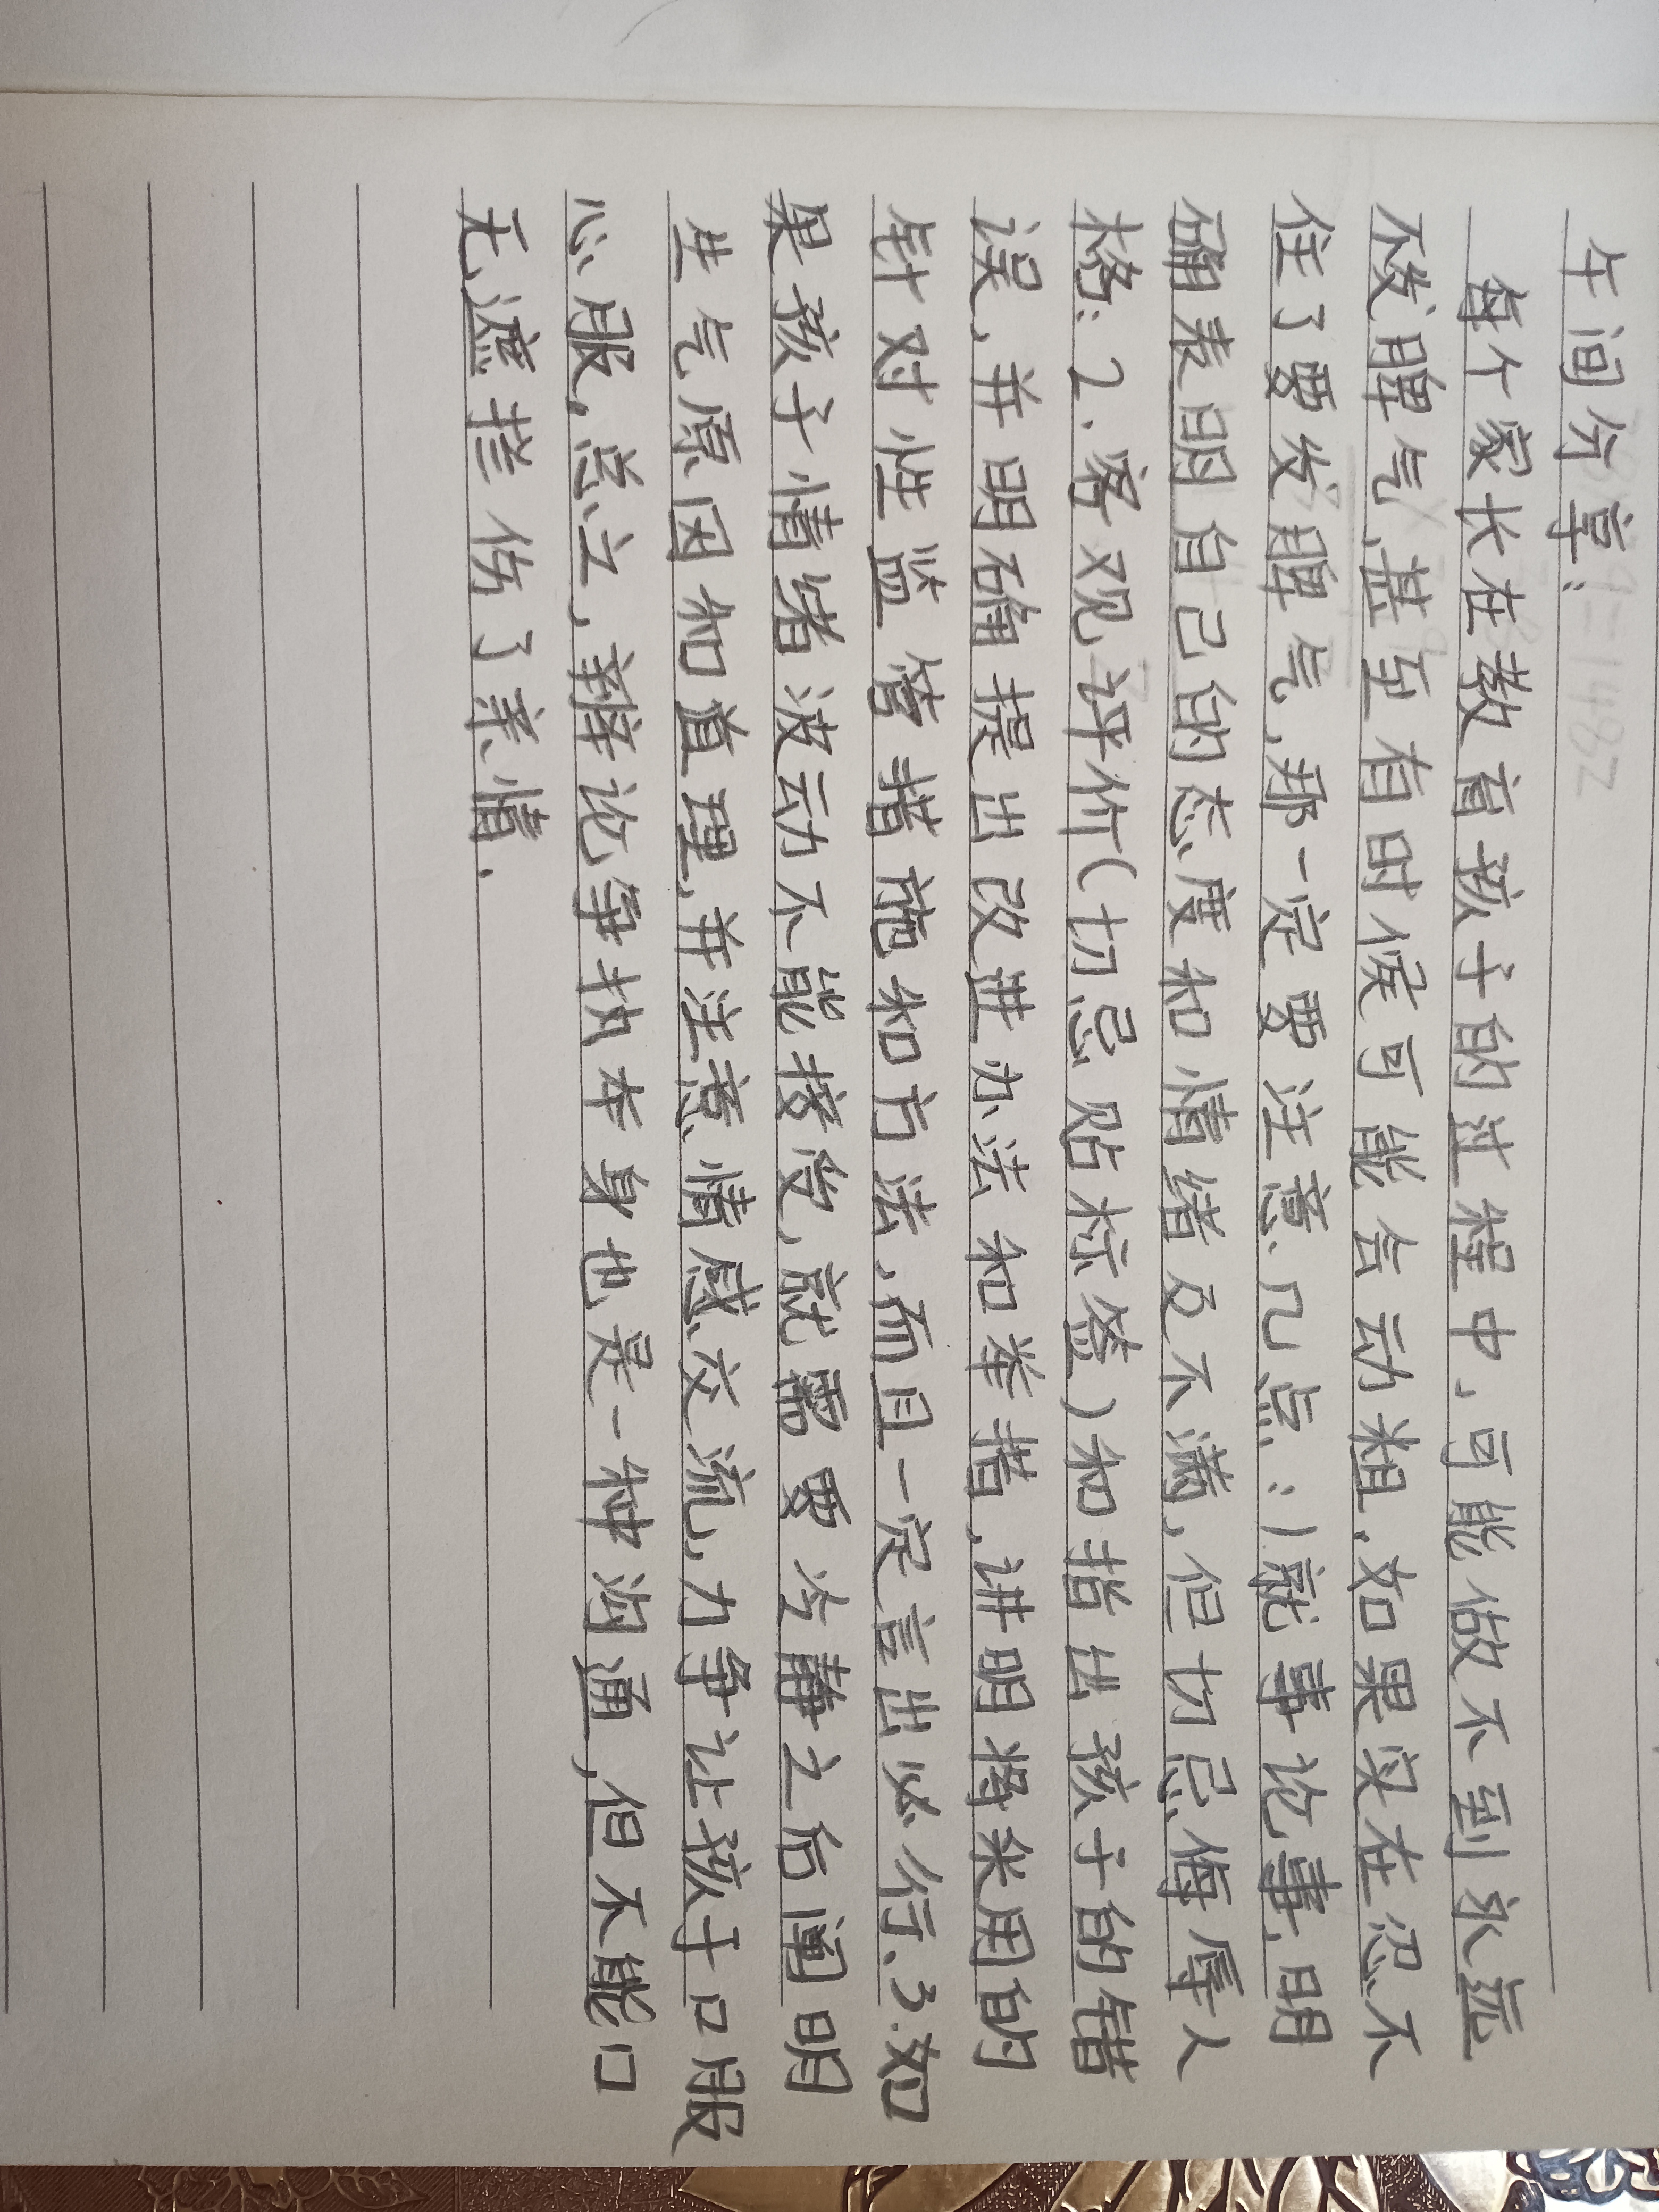 午间分享：
每个家长在教育孩子的过程中,可能做不到永远
不发脾气,甚至有时候可能会动粗,如果实在忍不
住了要发脾气,那一定要注意几点:1就事论事,明
确表明自己的态度和情绪及不满,但切忌侮辱人
格;2.客观评价(切忌贴标签)和指出孩子的错
误,并明确提出改进办法和举措,讲明将采用的
针对性监管措施和方法,而且一定言出必行,3.如
果孩子情绪波动不能接受,就需要冷静之后阐明
生气原因和道理,并注意情感交流,力争让孩子口服
心服,总之,辩论争执本身也是一种沟通,但不能口
无遮拦伤了亲情.